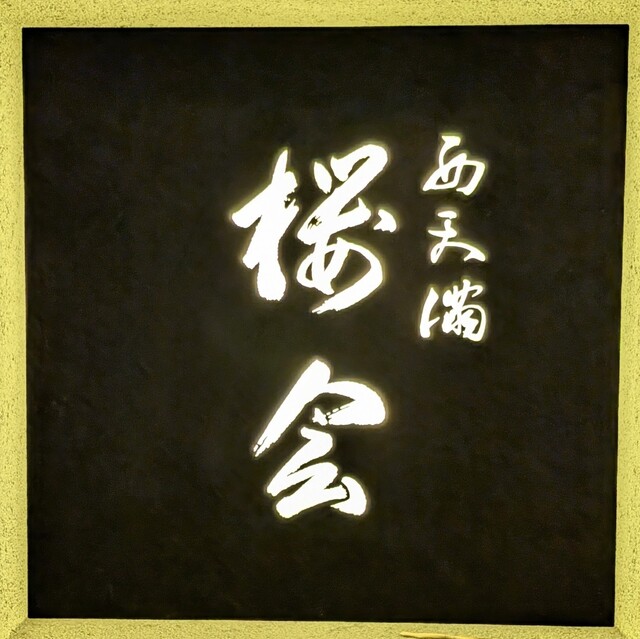 西天満
桜会